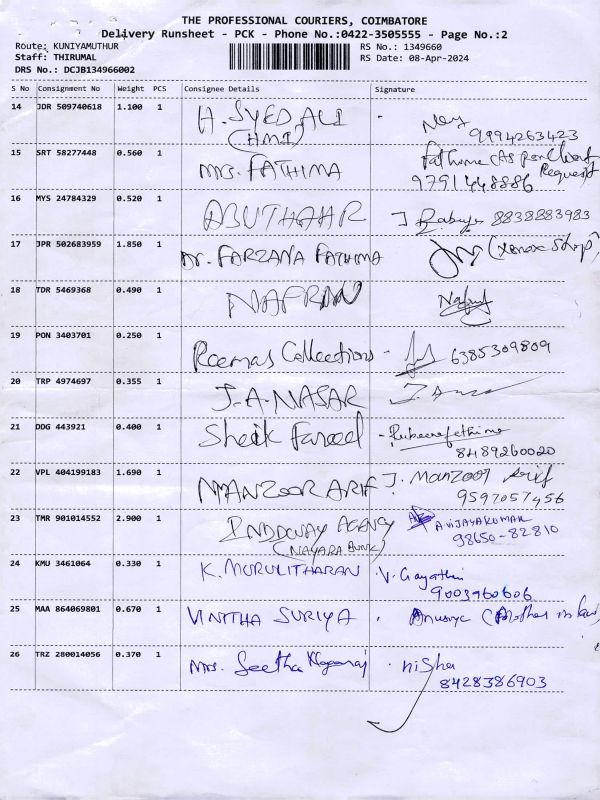 THE PROFESSIONAL COURIERS, COIMBATORE
Delivery Runsheet - PCK - Phone No.:0422-3505555 - Page No.:2
Route: KUNIYAMUTHUR
RS No.: 1349660
Staff: THIRUMAL
RS Date: 08-Apr-2024
DRS No.: DCJB134966002
S No Consignment No Weight PCS Consignee Details Signature
14 JDR 509740618 1.100 1 H. SYED ALI
(HMI) 9994263423
15 SRT 58277448 0.560 1 MRS. FATHIMA Fathima (As per Client
Request)
9791448886
16 MYS 24784329 0.520 1 ABUTHAHR 8838883983
17 JPR 502683959 1.850 1 Dr. FARZANA FATHIMA (Xerox Shop)
18 TDR 5469368 0.490 1 NAFRAN
19 PON 3403701 0.250 1 Reemas Collections - 6385309809
20 TRP 4974697 0.355 1 J.A.NASAR
21 DDG 443921 0.400 1 Sheik Fareed
8489260020
22 VPL 404199183 1.690 1 MANZOOR ARIF J. Manzoor Arif
9597057456
23 TMR 901014552 2.900 1 AGENCY A VIJAYAKUMAR
(NAYARA BUNK) 98650-82810
24 KMU 3461064 0.330 1 K. MURULITHARAN V. Gayathri
9003960606
25 MAA 864069801 0.670 1 VINITHA SURIYA (Mother in law)
26 TRZ 280014056 0.370 1 Mrs. Seetha Nagaraj Nisha
8428386903